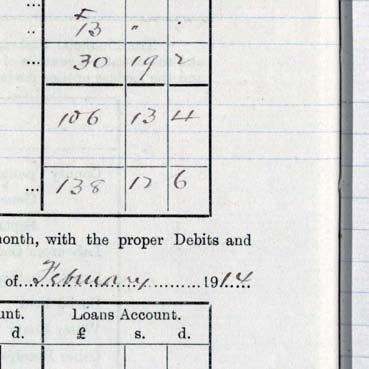 £
.. 13 " .
... 30 19 2
106 13 4
... 138 12 6
month, with the proper Debits and
of February 1914
unt. Loans Account.
d. £ s. d.